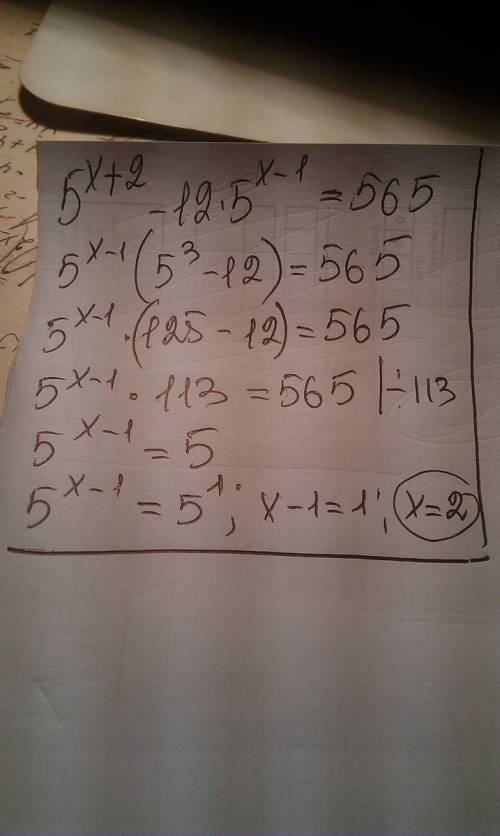 5^{x+2} - 12 · 5^{x-1} = 565
5^{x-1} (5^3 - 12) = 565
5^{x-1} · (125 - 12) = 565
5^{x-1} · 113 = 565 | ÷ 113
5^{x-1} = 5
5^{x-1} = 5^1; x-1=1; x=2